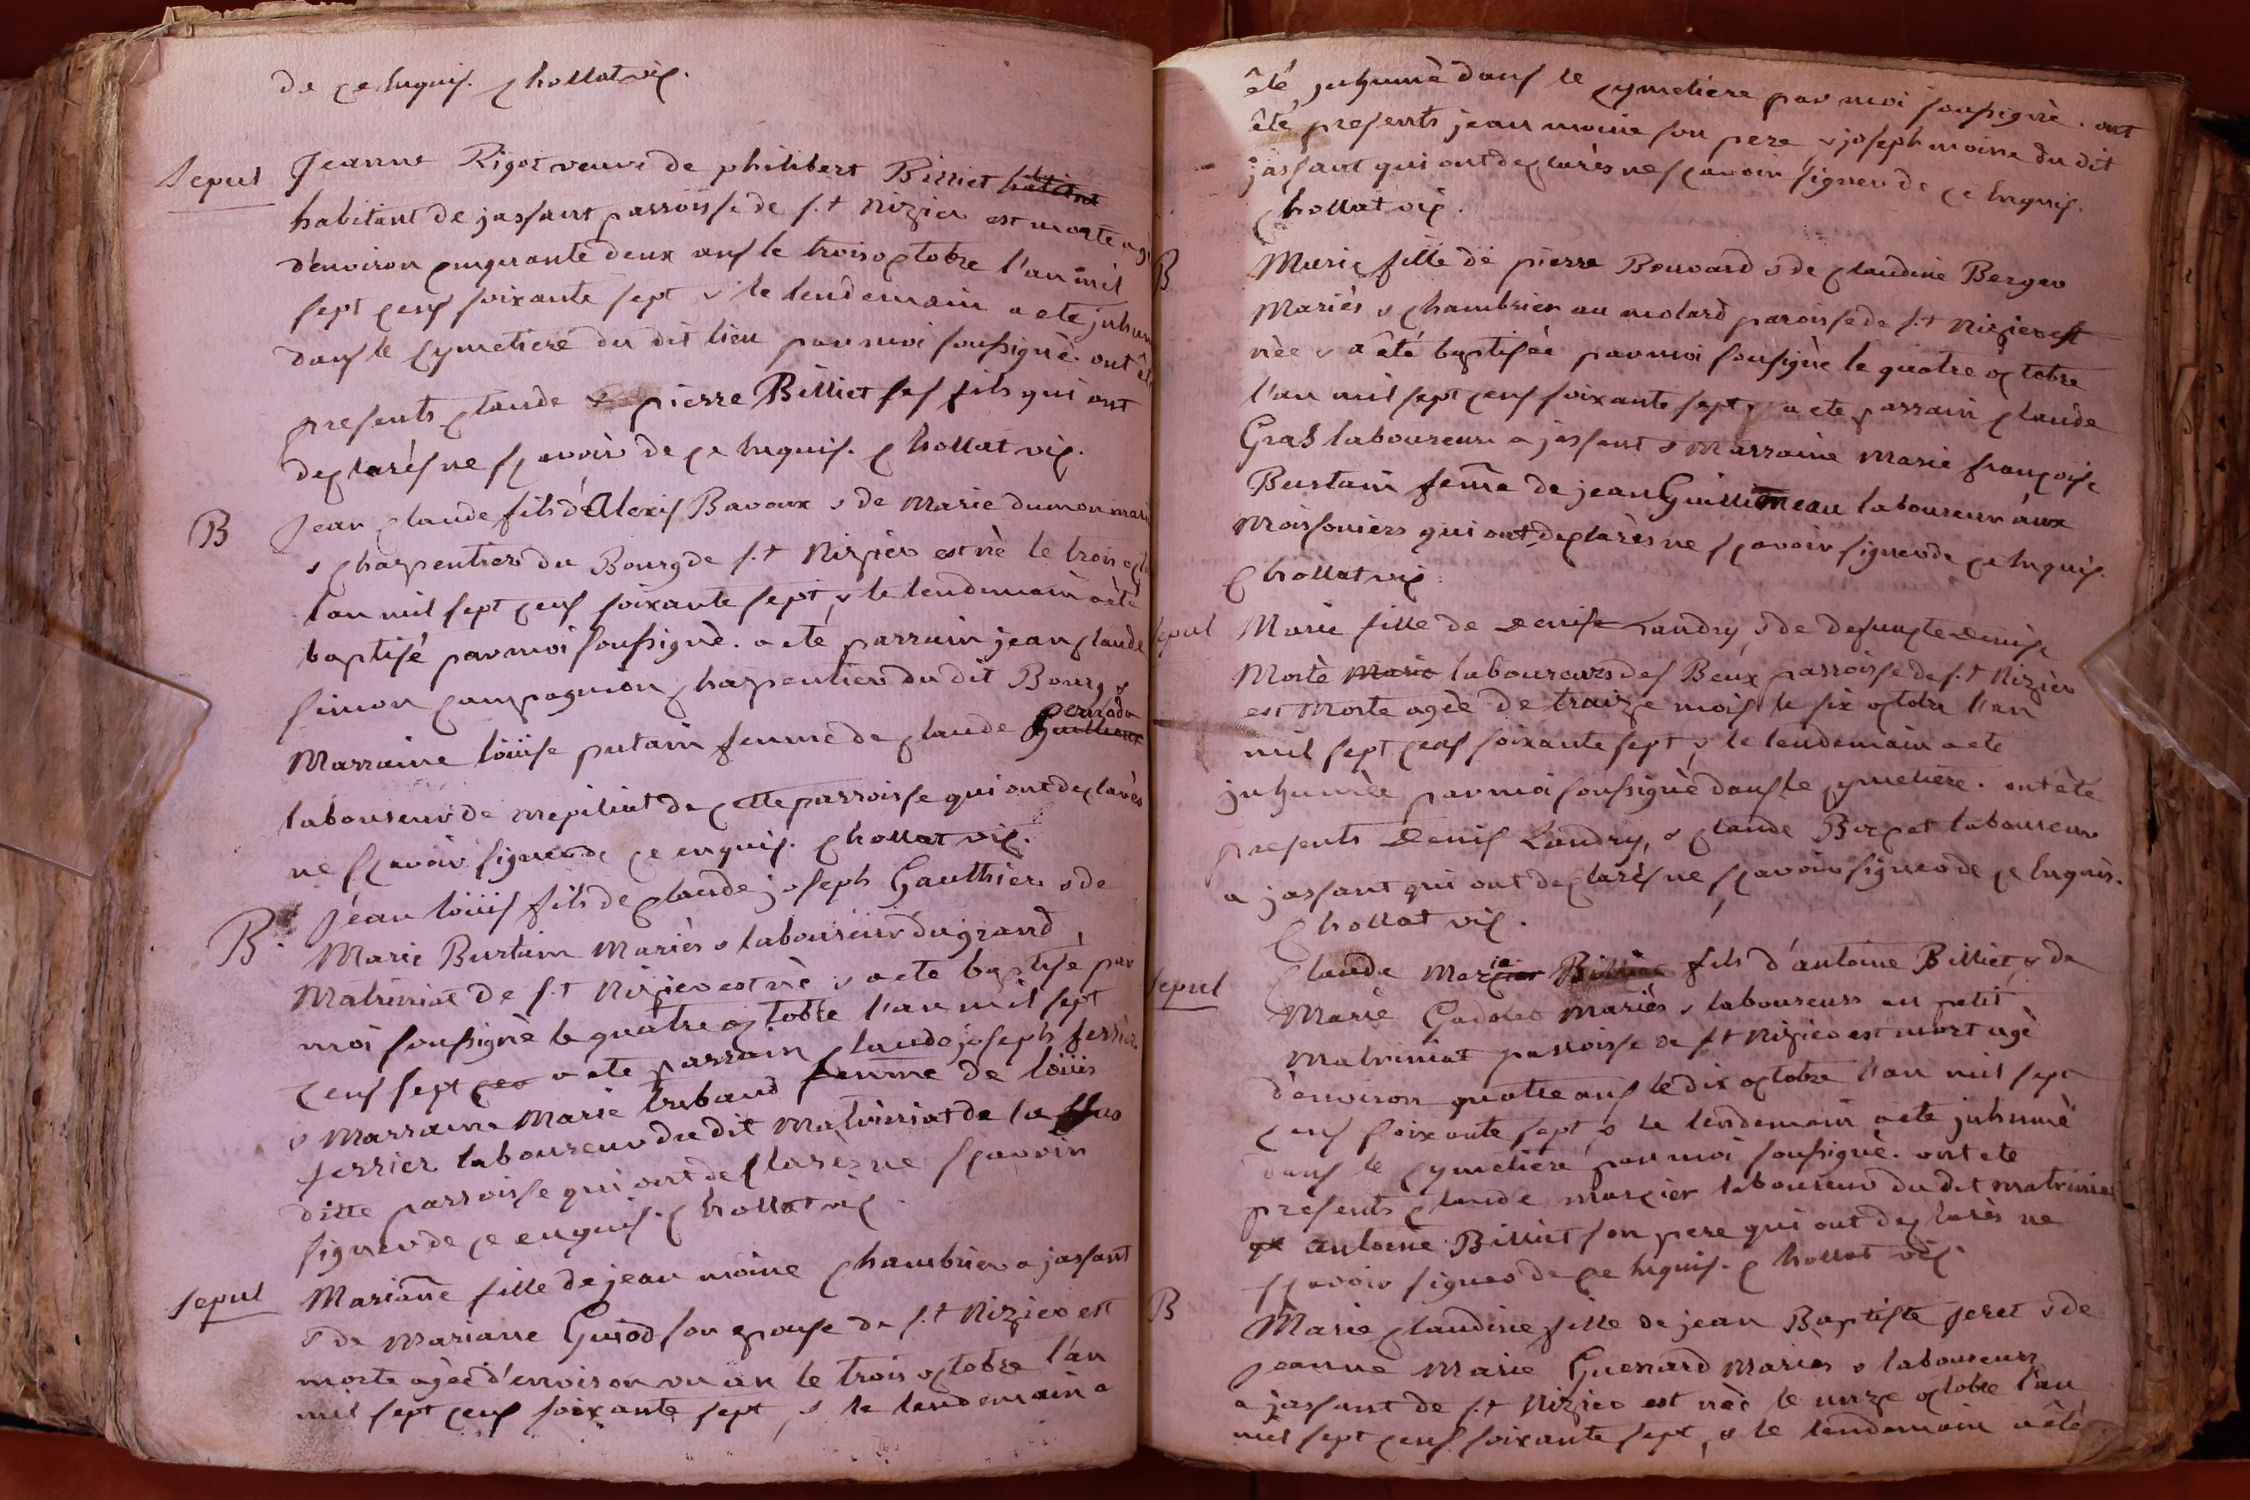 de ce Enquis. Chollat vic.
Sepul
Jeanne Rigot veuve de philibert Billiet
habitant de jassant parroisse de s.t Nizier est morte agé
d'environ cinquante deux ans le trois octobre l'an mil
sept cens soixante sept & le lendemain a ete inhumé
dans le cymetiere du dit lieu par moi soussignè. ont êté
presents claude & pierre Billiet ses fils qui ont
declarés ne sçavoir de ce Enquis. Chollat vic.
B
Jean claude fils d'Alexis Bavoux & de Marie dumon mariés
& charpentier du Bourg de s.t Nizier est nè le trois octobre
l'an mil sept cens soixante sept, & le lendemain a été
baptisé par moi soussigné. a eté parrain jean claude
simon compagnion charpentier du dit Bourg &
Marraine loüise putain femme de claude
laboureur de mepiliat de cette parroisse qui ont declarès
ne sçavoir signer de ce enquis. Chollat vic.
B.
Jean loüis fils de claude joseph Gauthier & de
Marie Burtain Mariès & laboureur du grand
Matriniat de s.t Nizier est né & a ete baptisé par
moi soussigné le quatre octobre l'an mil sept
cens sept a ete parrain claude joseph ferrier
& Marraine Marie trebaud femme de loüis
ferrier laboureur du dit Matriniat de la sus
ditte parroisse qui ont declarés ne sçavoir
signer de ce enquis. Chollat vic.
Sepul
Marianne fille de jean moine chambrier a jassant
& de Mariane Guiod son epouse de s.t Nizier est
morte agée d'environ un an le trois octobre l'an
mil sept cens soixante sept, & le lendemain a
êté inhumè dans le cymetiere par moi soussigné. ont
êté presents jean moine son pere & joseph moine du dit
jassant qui ont declarès ne sçavoir signer de ce Enquis.
Chollat vic.
B
Marie fille de pierre Bouvard & de claudine Berger
Mariès & chambrier au molard paroisse de s.t Nizier est
née & a êté baptisée par moi soussigné le quatre octobre
l'an mil sept cens soixante sept, a ete parrain claude
Gras laboureur a jassant & Marraine Marie françoise
Burtain feme de jean Guillemeau laboureur aux
Moissoniers qui ont declarès ne sçavoir signer de ce Enquis.
Chollat vic.
Sepul
Marie fille de Denise Landry & de defuncte Denise
Morte Marie laboureurs des Beux parroisse de s.t Nizier
est Morte agée de traize mois le six octobre l'an
mil sept cens soixante sept & le lendemain a ete
inhumée par moi soussigné dans le cymetiere. ont ête
presents Denis Landry, & claude laboureur
a jassant qui ont declarés ne sçavoir signer de ce Enquis.
Chollat vic.
Sepul
Claude Marie fils d'antoine Billiet & de
Marie mariés & laboureurs au petit
Matriniat parroisse de s.t Nizier est mort agé
d'environ quatre ans le dix octobre l'an mil sept
cens soixante sept, & le lendemain a ete inhumé
dans le cymetiere par moi soussigné. ont ete
presents claude marcier laboureur du dit matriniat
antoine Billiet son pere qui ont declarès ne
sçavoir signer de ce Enquis. Chollat vic.
B
Marie claudine fille de jean Baptiste feret & de
jeanne Marie Guenard Mariés & laboureurs
a jassant de s.t Nizier est née le unze octobre l'an
mil sept cens soixante sept, & le lendemain a êté